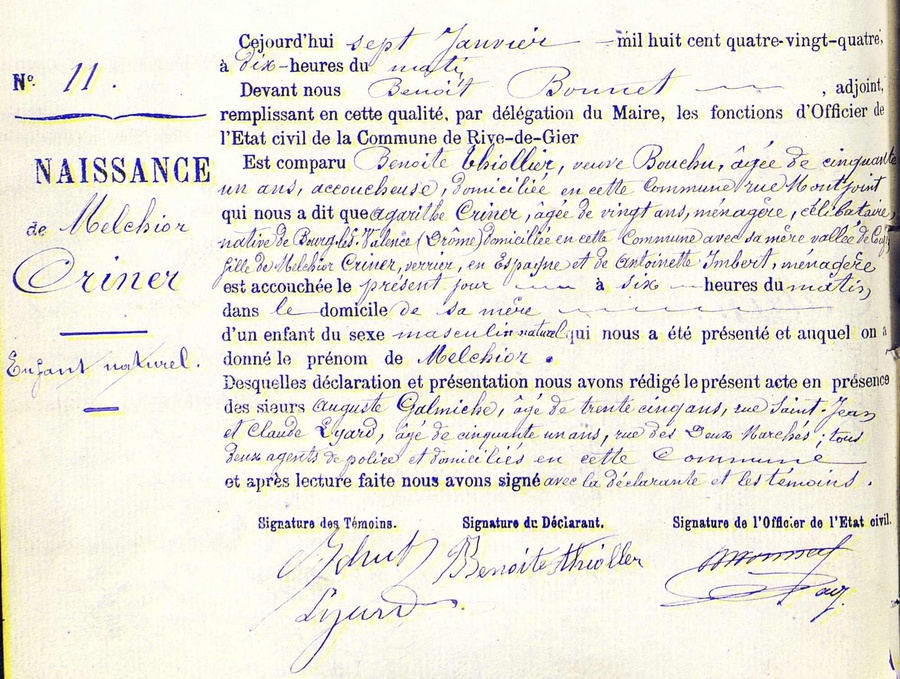 N° 11.
NAISSANCE
de Melchior
Criner
Enfant naturel.
Cejourd'hui sept Janvier mil huit cent quatre-vingt-quatre,
à dix heures du matin
Devant nous Benoît Bonnet, adjoint,
remplissant en cette qualité, par délégation du Maire, les fonctions d'Officier de
l'Etat civil de la Commune de Rive-de-Gier
Est comparu Benoite Thiollier, veuve Bouchu, âgée de cinquante
un ans, accoucheuse, domiciliée en cette Commune rue Montjoint
qui nous a dit que agarithe Criner, âgée de vingt ans, ménagère, célibataire,
native de Bourg-lès-Valence (Drôme) domiciliée en cette Commune avec sa mère vallée de
fille de Melchior Criner, verrier, en Espagne et de Antoinette Imbert, ménagère
est accouchée le présent jour à six heures du matin,
dans le domicile de sa mère
d'un enfant du sexe masculin naturel qui nous a été présenté et auquel on a
donné le prénom de Melchior.
Desquelles déclaration et présentation nous avons rédigé le présent acte en présence
des sieurs Auguste Galmiche, âgé de trente cinq ans, rue Saint-Jean
et Claude Lyard, âgé de cinquante un ans, rue des Deux Marchés ; tous
deux agents de police et domiciliés en cette Commune
et après lecture faite nous avons signé avec la déclarante et les témoins.
Signature des Témoins. Signature du Déclarant. Signature de l'Officier de l'Etat civil.
Benoite thioller
Lyard